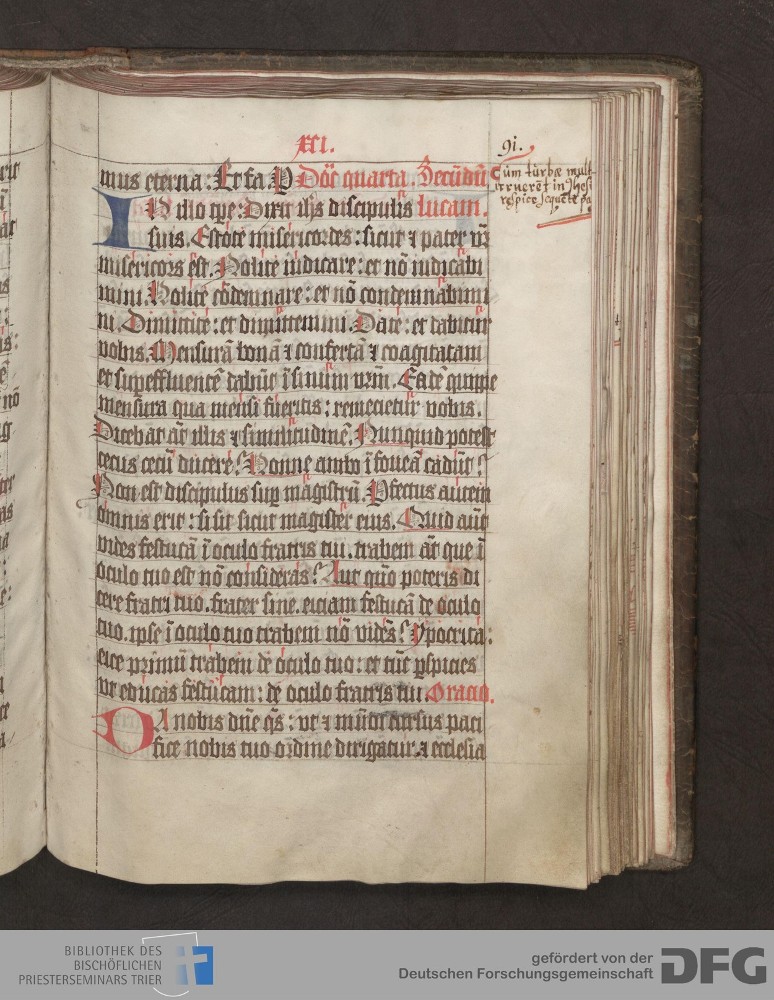 xci.
91.
mus eterna: Er fa. P Dõc quarta. Secūdū
lucam.
IN illo tpe: Dixit ihs discipulis
suis. Estote misericordes: sicut ⁊ pater vr̄
misericors est. Nolite iudicare: et nō iudicabi
mini. Nolite cōdemnare: et nō condemnabimi
ni. Dimittite: et dimittemini. Date: et dabitur
vobis. Mensurā bonā ⁊ confertā ⁊ coagitatam
et supeffluentē dabūt ī sinum vrm̄. Eadē quippe
mensura qua mensi fueritis: remecietur vobis.
Dicebat āt illis ⁊ similitudinē. Nunquid potest
cecus cecū ducere? Nonne ambo ī foueā cadūt?
Non est discipulus sup magistrū. Pfectus autem
omnis erit: si sit sicut magister eius. Quid aūt
vides festucā ī oculo fratris tui. trabem āt que ī
oculo tuo est nō consideras? Aut quō poteris di
cere fratri tuo. frater sine. eiciam festucā de oculo
tuo. ipse ī oculo tuo trabem nō vidēs? Ypocrita:
eice primū trabem de oculo tuo: et tūc pspicies
vt educas festucam: de oculo fratris tui. Oracio.
DA nobis dn̄e qs̄: vt ⁊ mūdi cursus paci
fice nobis tuo ordine dirigatur. ⁊ ecclesia
Cum turbæ mult
irruerēt in Jhesū
respice sequēte pa
BIBLIOTHEK DES
BISCHÖFLICHEN
PRIESTERSEMINARS TRIER
gefördert von der
Deutschen Forschungsgemeinschaft
DFG